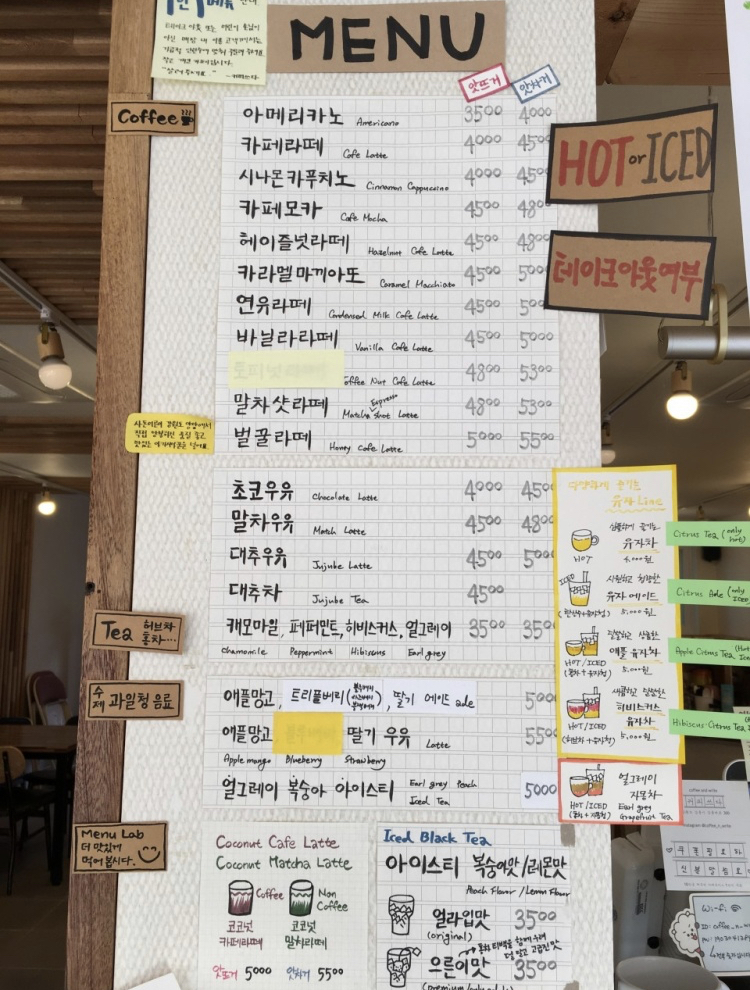 MENU
앗뜨거 앗차거
Coffee
아메리카노 Americano 3500 4000
카페라떼 Cafe Latte 4000 4500
시나몬 카푸치노 Cinnamon Cappuccino 4000 4500
카페모카 Cafe Mocha 4500 4800
헤이즐넛라떼 Hazelnut Cafe Latte 4500 4800
카라멜마끼아또 Caramel Macchiato 4500 5000
연유라떼 Condensed Milk Cafe Latte 4500 5000
바닐라라떼 Vanilla Cafe Latte 4500 5000
토피넛라떼 Toffee Nut Cafe Latte 4800 5300
말차샷라떼 Matcha Espresso Shot Latte 4800 5300
벌꿀라떼 Honey Cafe Latte 5000 5500
HOT or ICED
테이크아웃여부
초코우유 Chocolate Latte 4000 450
말차우유 Match Latte 4500 4800
대추우유 Jujube Latte 4500 500
대추차 Jujube Tea 4500
Tea 허브차
홍차...
캐모마일, 페퍼민트, 히비스커스, 얼그레이 3500 350
Chamomile Peppermint Hibiscus Earl grey
수제 과일청 음료
애플망고, 트리플베리, 딸기 에이드 ade 500
애플망고 딸기 우유 Latte 550
Apple mango Blueberry Strawberry
얼그레이 복숭아 아이스티 Earl grey Peach
Iced Tea 5000
유자Line
HOT
유자차
4,000원
Citrus Tea (only
hot)
ICED
유자 에이드
5,000원
Citrus Ade (only
Iced
애플 유자차
HOT/ICED
5,000원
Apple Citrus Tea (Hot
히비스커스
유자차
HOT/ICED
5,000원
Hibiscus Citrus Tea
얼그레이
자몽차
HOT/ICED Earl grey
Grapefruit Tea
Menu Lab
더 맛있게
먹어 봅시다.
Coconut Cafe Latte
Coconut Matcha Latte
Coffee
Non
Coffee
코코넛
카페라떼
코코넛
말차라떼
앗뜨거 5000 앗차거 5500
Iced Black Tea
아이스티 복숭아맛/레몬맛
Peach Flavor / Lemon Flavor
얼라입맛 3500
(original)
으른이맛 3500
Wi-Fi